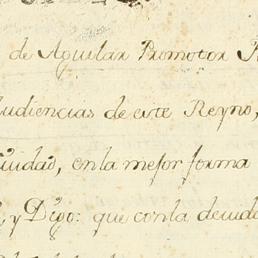 de Aguilar Promotor
Audiencias de este Reyno,
Ciudad, en la mejor forma
y Digo: que con la devida